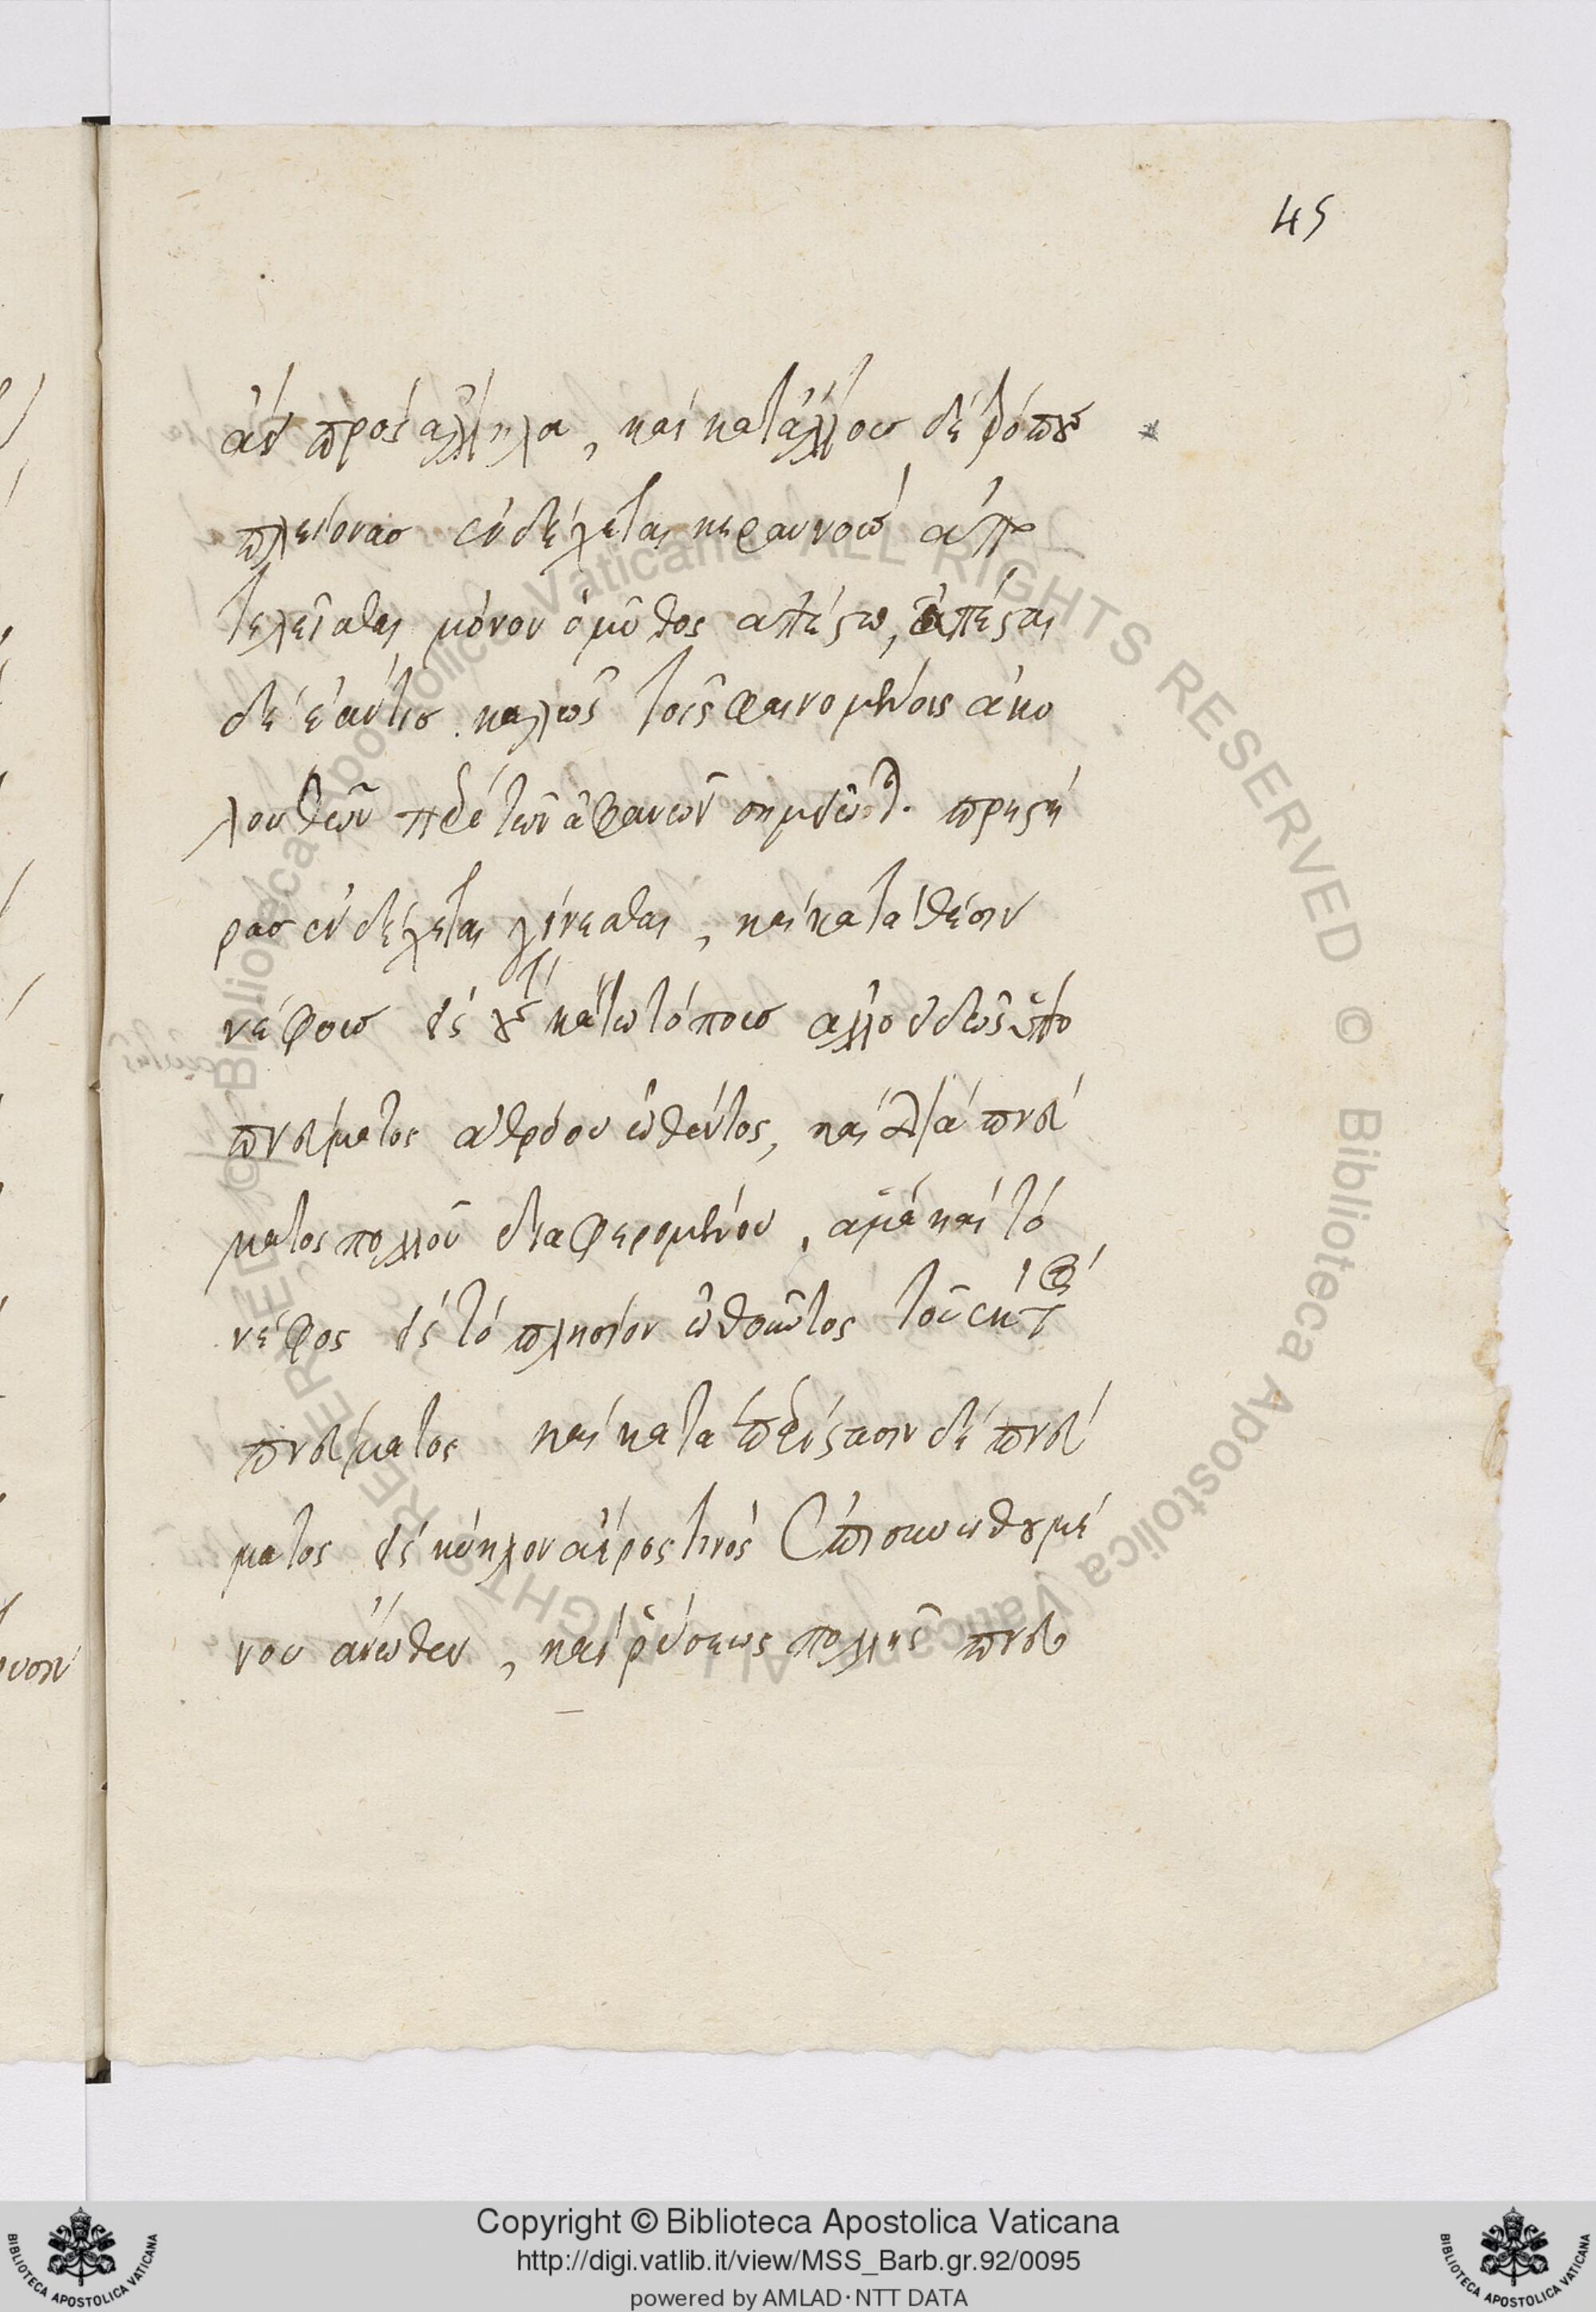 45
ἀν προς ἄλληλα, καὶ κατ' ἄλλους δὲ τρόπους
πλείονας ἐνδέχεται κεραυνοὺς ἀπο
τελεῖσθαι μόνον ὁ μῦθος ἀπέστω, ἀπέσται
δὲ ἐάν τις καλῶς τοῖς φαινομένοις ἀκο
λουθῶν περὶ τῶν ἀφανῶν σημειῶται. πρηστῆ
ρας ἐνδέχεται γίνεσθαι, καὶ κατὰ θέσιν
νέφους εἰς τοὺς κάτω τόπους ἀλλουδῶς ὑπὸ
πνεύματος ἀθρόου ὠσθέντος, καὶ διὰ πνεύ
ματος πολλοῦ διαφερομένου, ἅμα καὶ τὸ
νέφος εἰς τὸ πλησίον ὠθοῦντος τοῦ ἐκτὸς
πνεύματος καὶ κατὰ περίστασιν δὲ πνεύ
ματος εἰς κύκλον ἀέρος τινὸς ἐπισυνωθουμέ
νου ἄνωθεν, καὶ ῥύσεως πολλῆς πνευ
Copyright © Biblioteca Apostolica Vaticana
http://digi.vatlib.it/view/MSS_Barb.gr.92/0095
powered by AMLAD·NTT DATA
BIBLIOTECA APOSTOLICA VATICANA
BIBLIOTECA APOSTOLICA VATICANA
© Biblioteca Apostolica Vaticana ALL RIGHTS RESERVED © Biblioteca Apostolica Vaticana ALL RIGHTS RESERVED